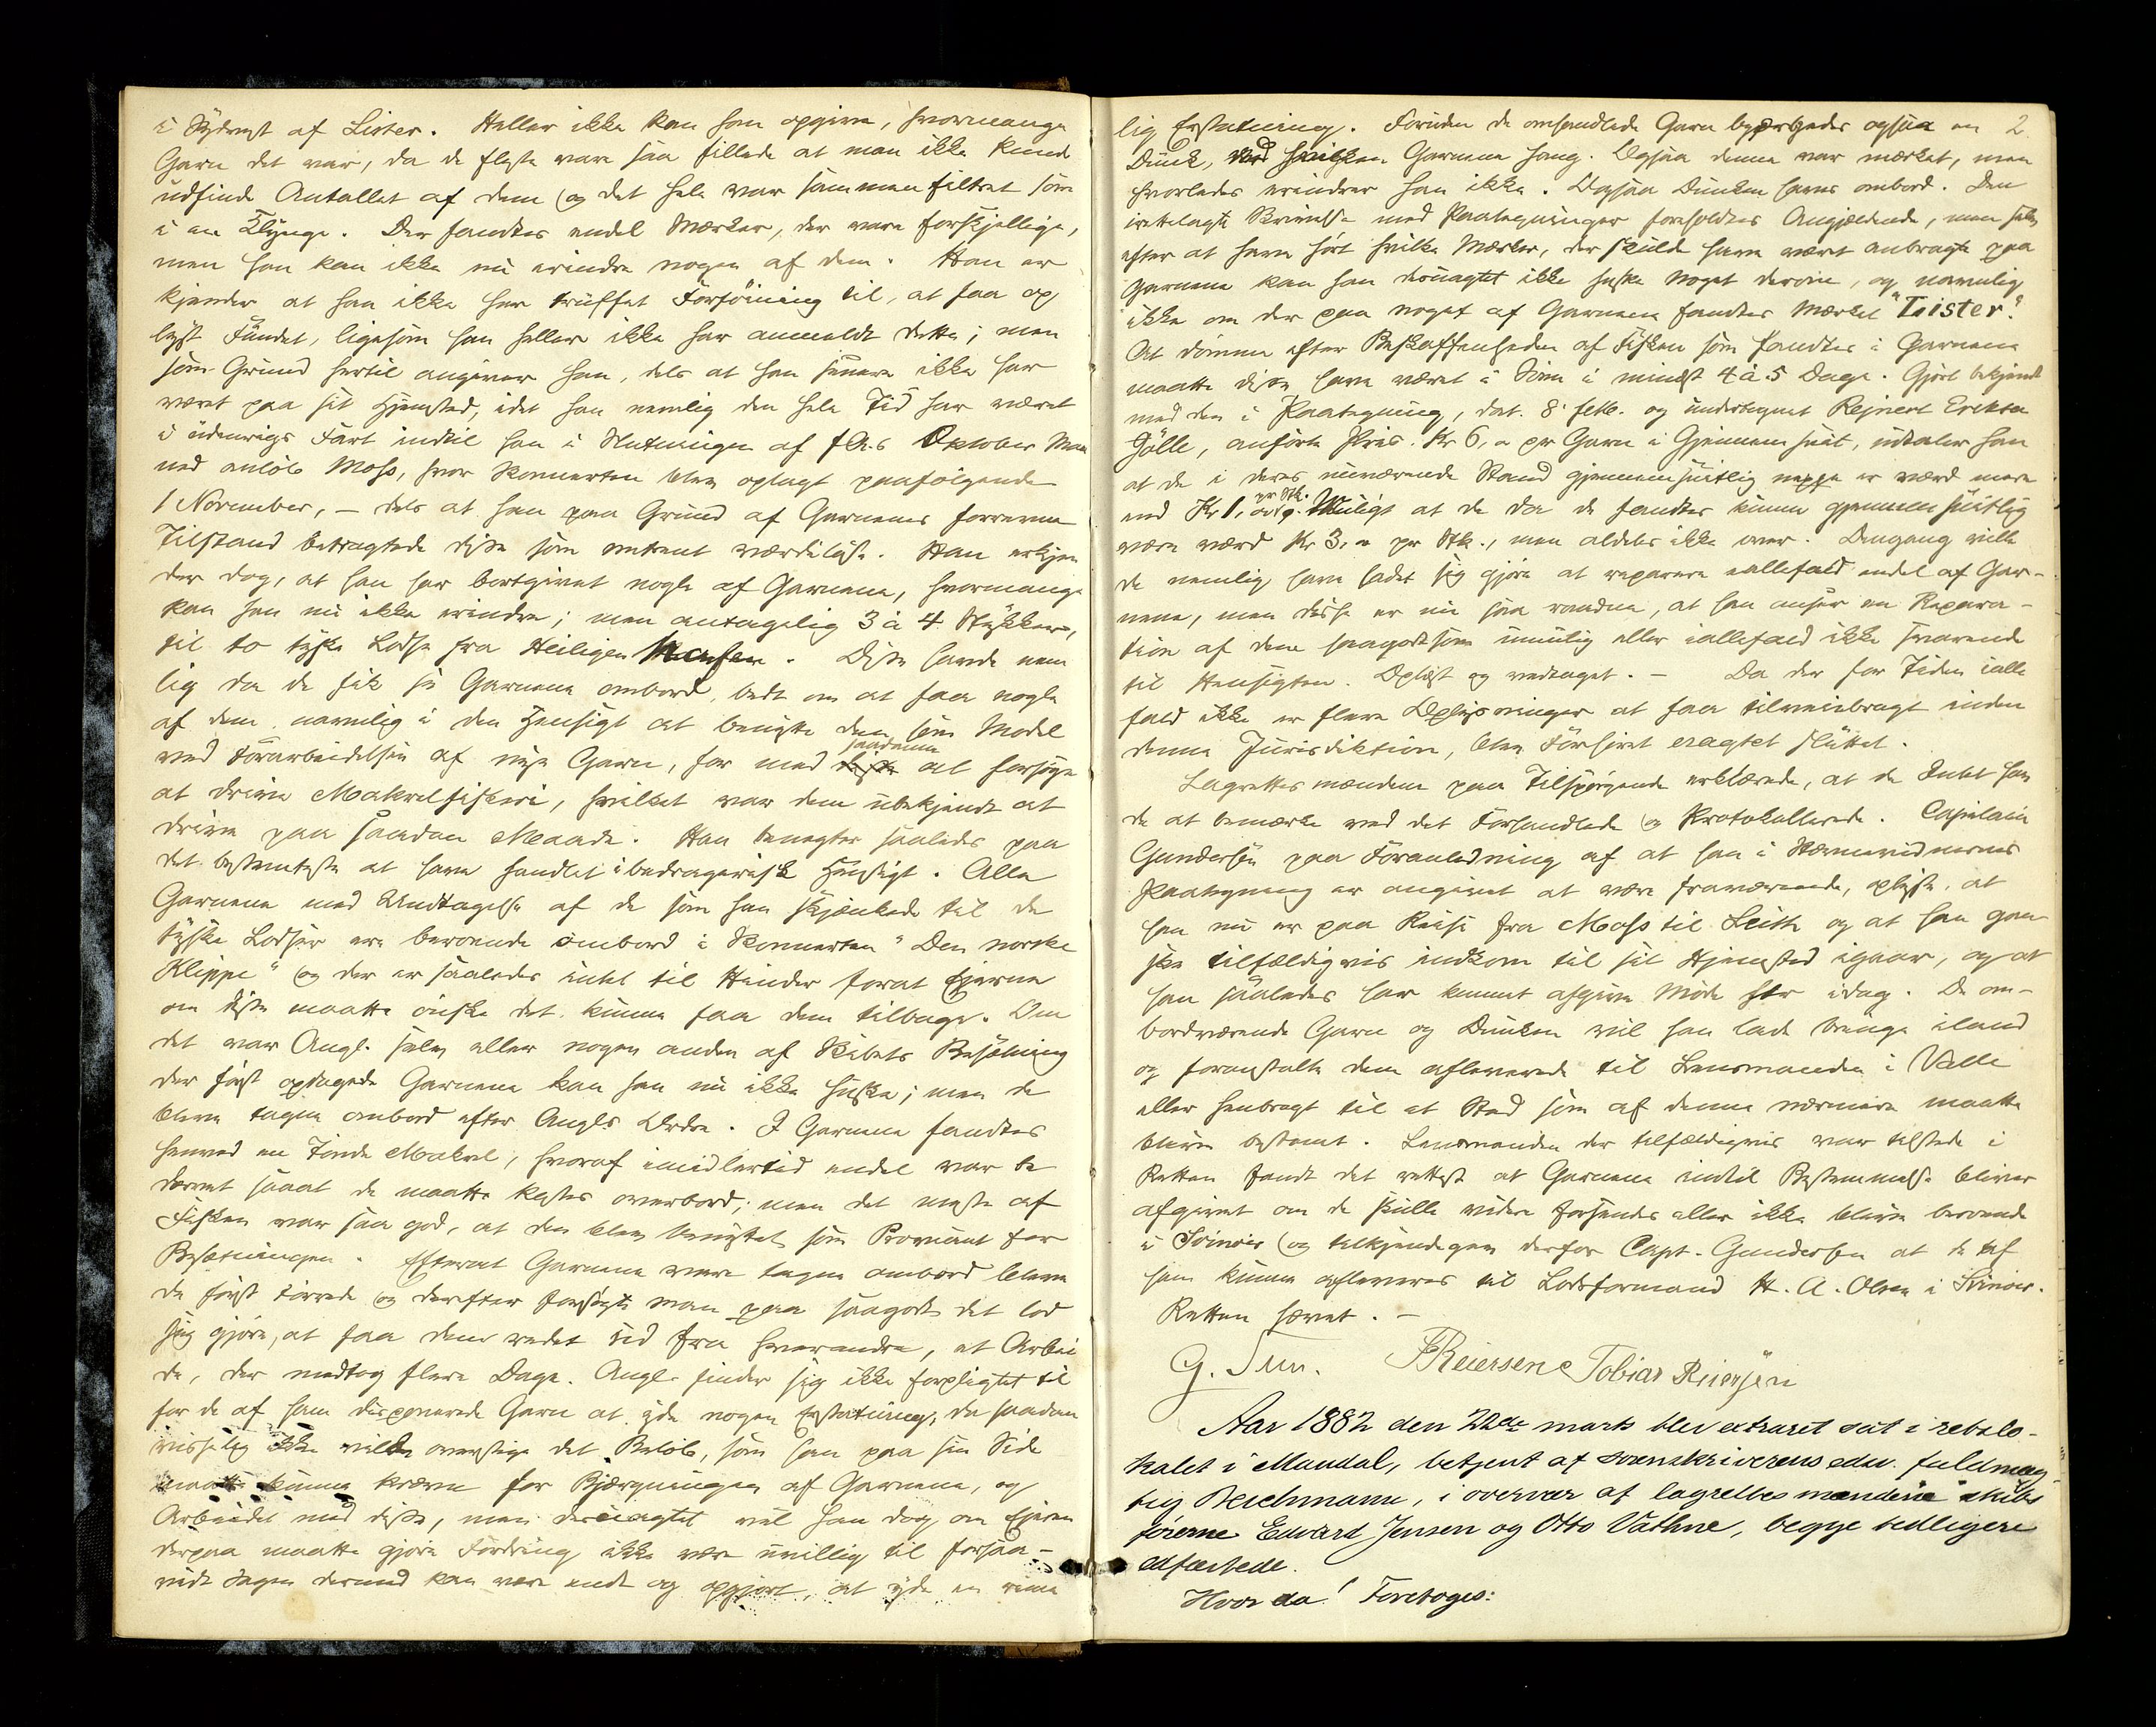 i Sydvest af Lister. Heller ikke kan han opgive, hvormange
Garn det var, da de fleste vare saa fillede at man ikke kunde
udfinde Antallet af dem og det hele var sammenfiltret som
i en Klynge. Der fandtes endel Mærker, der vare forskjellige,
men han kan ikke nu erindre nogen af dem. Han er
kjender at han ikke har truffet Forføining til, at faa op
lyst Fundet, ligesom han heller ikke har anmeldt dette; men
som Grund hertil angiver han, dels at han senere ikke har
været paa sit Hjemsted, idet han nemlig den hele Tid har været
i udenrigs Fart indtil han i Slutningen af f.A.s Oktober Maa
ned anløb Moss, hvor Skonnerten blev oplagt paafølgende
1 November, – dels at han paa Grund af Garnenes forrevne
Tilstand betragtede disse som omtrent værdiløse. Han erkjen
der dog, at han har bortgivet nogle af Garnene, hvormange
kan han nu ikke erindre; men antagelig 3 à 4 Stykker,
til to tyske Lodse fra Heiligenhafen. Disse havde nem
lig da de fik se Garnene ombord, bedt om at faa nogle
af dem navnlig i den Hensigt at benytte dem som Model
ved Forarbeidelsen af nye Garn, for med disse saadanne at forsøge
at drive Makrelfiskeri, hvilket var dem ubekjendt at
drive paa saadan Maade. Han benegter saaledes paa
det bestemteste at have handlet i bedragerisk Hensigt. Alle
Garnene med Undtagelse af de som han skjænkede til de
tyske Lodser ere beroende ombord i Skonnerten "Den norske
Klippe" og der er saaledes intet til Hinder forat Eierne
om disse maatte ønske det kunne faa dem tilbage. Om
det var Angl. selv eller nogen anden af Skibets Besætning
der først opdagede Garnene kan han nu ikke huske; men de
bleve tagne ombord efter Angls Ordre. I Garnene fandtes
henved en Tønde Makrel, hvoraf imidlertid endel var be
dærvet saaat de maatte kastes overbord; men det meste af
Fisken var saa god, at den blev benyttet som Proviant for
Besætningen. Efterat Garnene vare tagne ombord bleve
de først tørrede og derefter forsøgte man paa saagodt det lod
sig gjøre, at faa dem redet ud fra hverandre, et Arbei
de, der medtog flere Dage. Angl. finder sig ikke forpligtet til
for de af ham disponerede Garn at yde nogen Erstatning, da saadan
visselig ikke vilde overstige det Beløb, som han paa sin Side
maatte kunne kræve for Bjærgningen af Garnene, og
Arbeidet med disse, men desuagtet vil han dog om Eieren
derpaa maatte gjøre Fordring ikke være uvillig til forsaa-
vidt Sagen dermed kan være endt og opgjort, at yde en rime
lig Erstatning. Foruden de omhandlede Garn bjergedes ogsaa en 2.
Dunk, ved hvilken Garnene hang. Ogsaa denne var mærket, men
hvorledes erindrer han ikke. Ogsaa Dunken haves ombord. Den
irettelagte Skrivelse med Paategninger foreholdtes Angjældende, men selv
efter at have hørt hvilke Mærker, der skulde have været anbragte paa
Garnene kan han desuagtet ikke huske noget derom, og navnlig
ikke om der paa noget af Garnene fandtes Mærket "Lister".
At dømme efter Beskaffenheden af Fisken som fandtes i Garnene
maatte disse have været i Søen i mindst 4 à 5 Dage. Gjort bekjendt
med den i Paategning, dat. 8 febr. og undertegnet Rejnert Eriksen
Gölle, anførte Pris Kr 6,00 pr Garn i Gjennemsnit, udtaler han
at de i deres nuværende Stand gjennemsnitlig neppe er værd mere
end Kr 1, pr Stk. Muligt at de da de fandtes kunne gjennemsnitlig
være værd Kr 3,00 pr Stk., men aldeles ikke over. Dengang vilde
de nemlig have ladet sig gjøre at reparere ialfald endel af Gar-
nene, men disse er nu saa raadne, at han anser en Repara-
tion af dem saagodtsom umulig eller ialfald ikke svarende
til Hensigten. Oplæst og vedtaget. – Da der for Tiden ialle
fald ikke er flere Oplysninger at faa tilveiebragt inden
denne Jurisdiktion, blev Forhøret eragtet sluttet.
Lagrettesmændene paa Tilspørgende erklærede, at de Intet hav
de at bemærke ved det Forhandlede og Protokollerede. Captain
Gundersen paa Foranledning af at han i Stævnevidnernes
Paategning er angivet at være fraværende, oplyste, at
han nu er paa Reise fra Moss til Leith og at han gan-
ske tilfældigvis indkom til sit Hjemsted igaar, og at
han saaledes har kunnet afgive Møde her idag. De om-
bordværende Garn og Dunken vil han lade bringe iland
og foranstalte dem afleverede til Lensmanden i Valle
eller henbragt til et Sted som af denne nærmere maatte
blive bestemt. Lensmanden der tilfældigvis var tilstede i
Retten fandt det rettest at Garnene indtil Bestemmelse bliver
afgivet om de skulle videre forsendes eller ikke bleve beroende
i Svinør og tilkjendegav derfor Capt. Gundersen at de af
ham kunne afleveres til Lodsformand H. A. Olsen i Svinør.
Retten hævet. –
G. Reiersen Tobias Reiersen
Aar 1882 den 22de marts blev extraret sat i retslo-
kalet i Mandal, betjent af sorenskriverens edsv. fuldmæg-
tig Reichmann, i overvær af lagrettesmændene skibs
førerne Edvard Jensen og Otto Vathne, begge tidligere
edfæstede.
Hvor da! Foretoges: